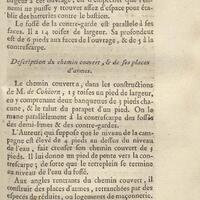 nemi ne puisse y trouver assez d'espace pour éta-
blir des batteries contre le bastion.
Le fossé de la contre-garde est parallele à ses
faces. Il a 14 toises de largeur. Sa profondeur
est de 6 pieds aux faces de l'ouvrage, & de 5 à la
contrescarpe.
Description du chemin couvert, & de ses places
d'armes.
Le chemin couvert a, dans les constructions
de M. de Cohorn, 13 toises au pied de largeur,
en y comprenant deux banquettes de 3 pieds cha-
cune, & le talut du parapet d'un pied. On le
mene parallèlement à la contrescarpe des fossés
des demi-lunes & des contre-gardes.
L'Auteur qui suppose que le niveau de la cam-
pagne est élevé de 4 pieds au dessus du niveau
de l'eau, fait creuser son chemin couvert de
3 pieds. Il lui donne un pied de pente vers la con-
trescarpe; de sorte que le terreplein se termine
au niveau de l'eau du fossé.
Aux angles rentrants du chemin couvert, il
construit des places d'armes, retranchées par des
especes de réduits, ou logements de maçonnerie.